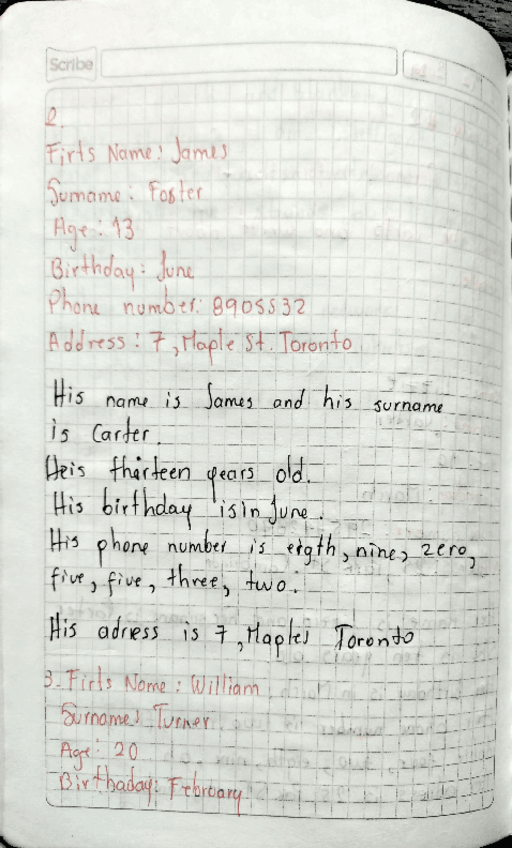 Scribe
2.
Firts Name: James
Surname: Foster
Age: 13
Birthday: June
Phone number: 8905532
Address: 7, Maple St. Toronto
His name is James and his surname
is Carter.
He is thirteen years old.
His birthday is in June.
His phone number is eigth, nine, zero,
five, five, three, two.
His adress is 7, Maples Toronto
3. Firts Name: William
Surname: Turner
Age: 20
Birthaday: February